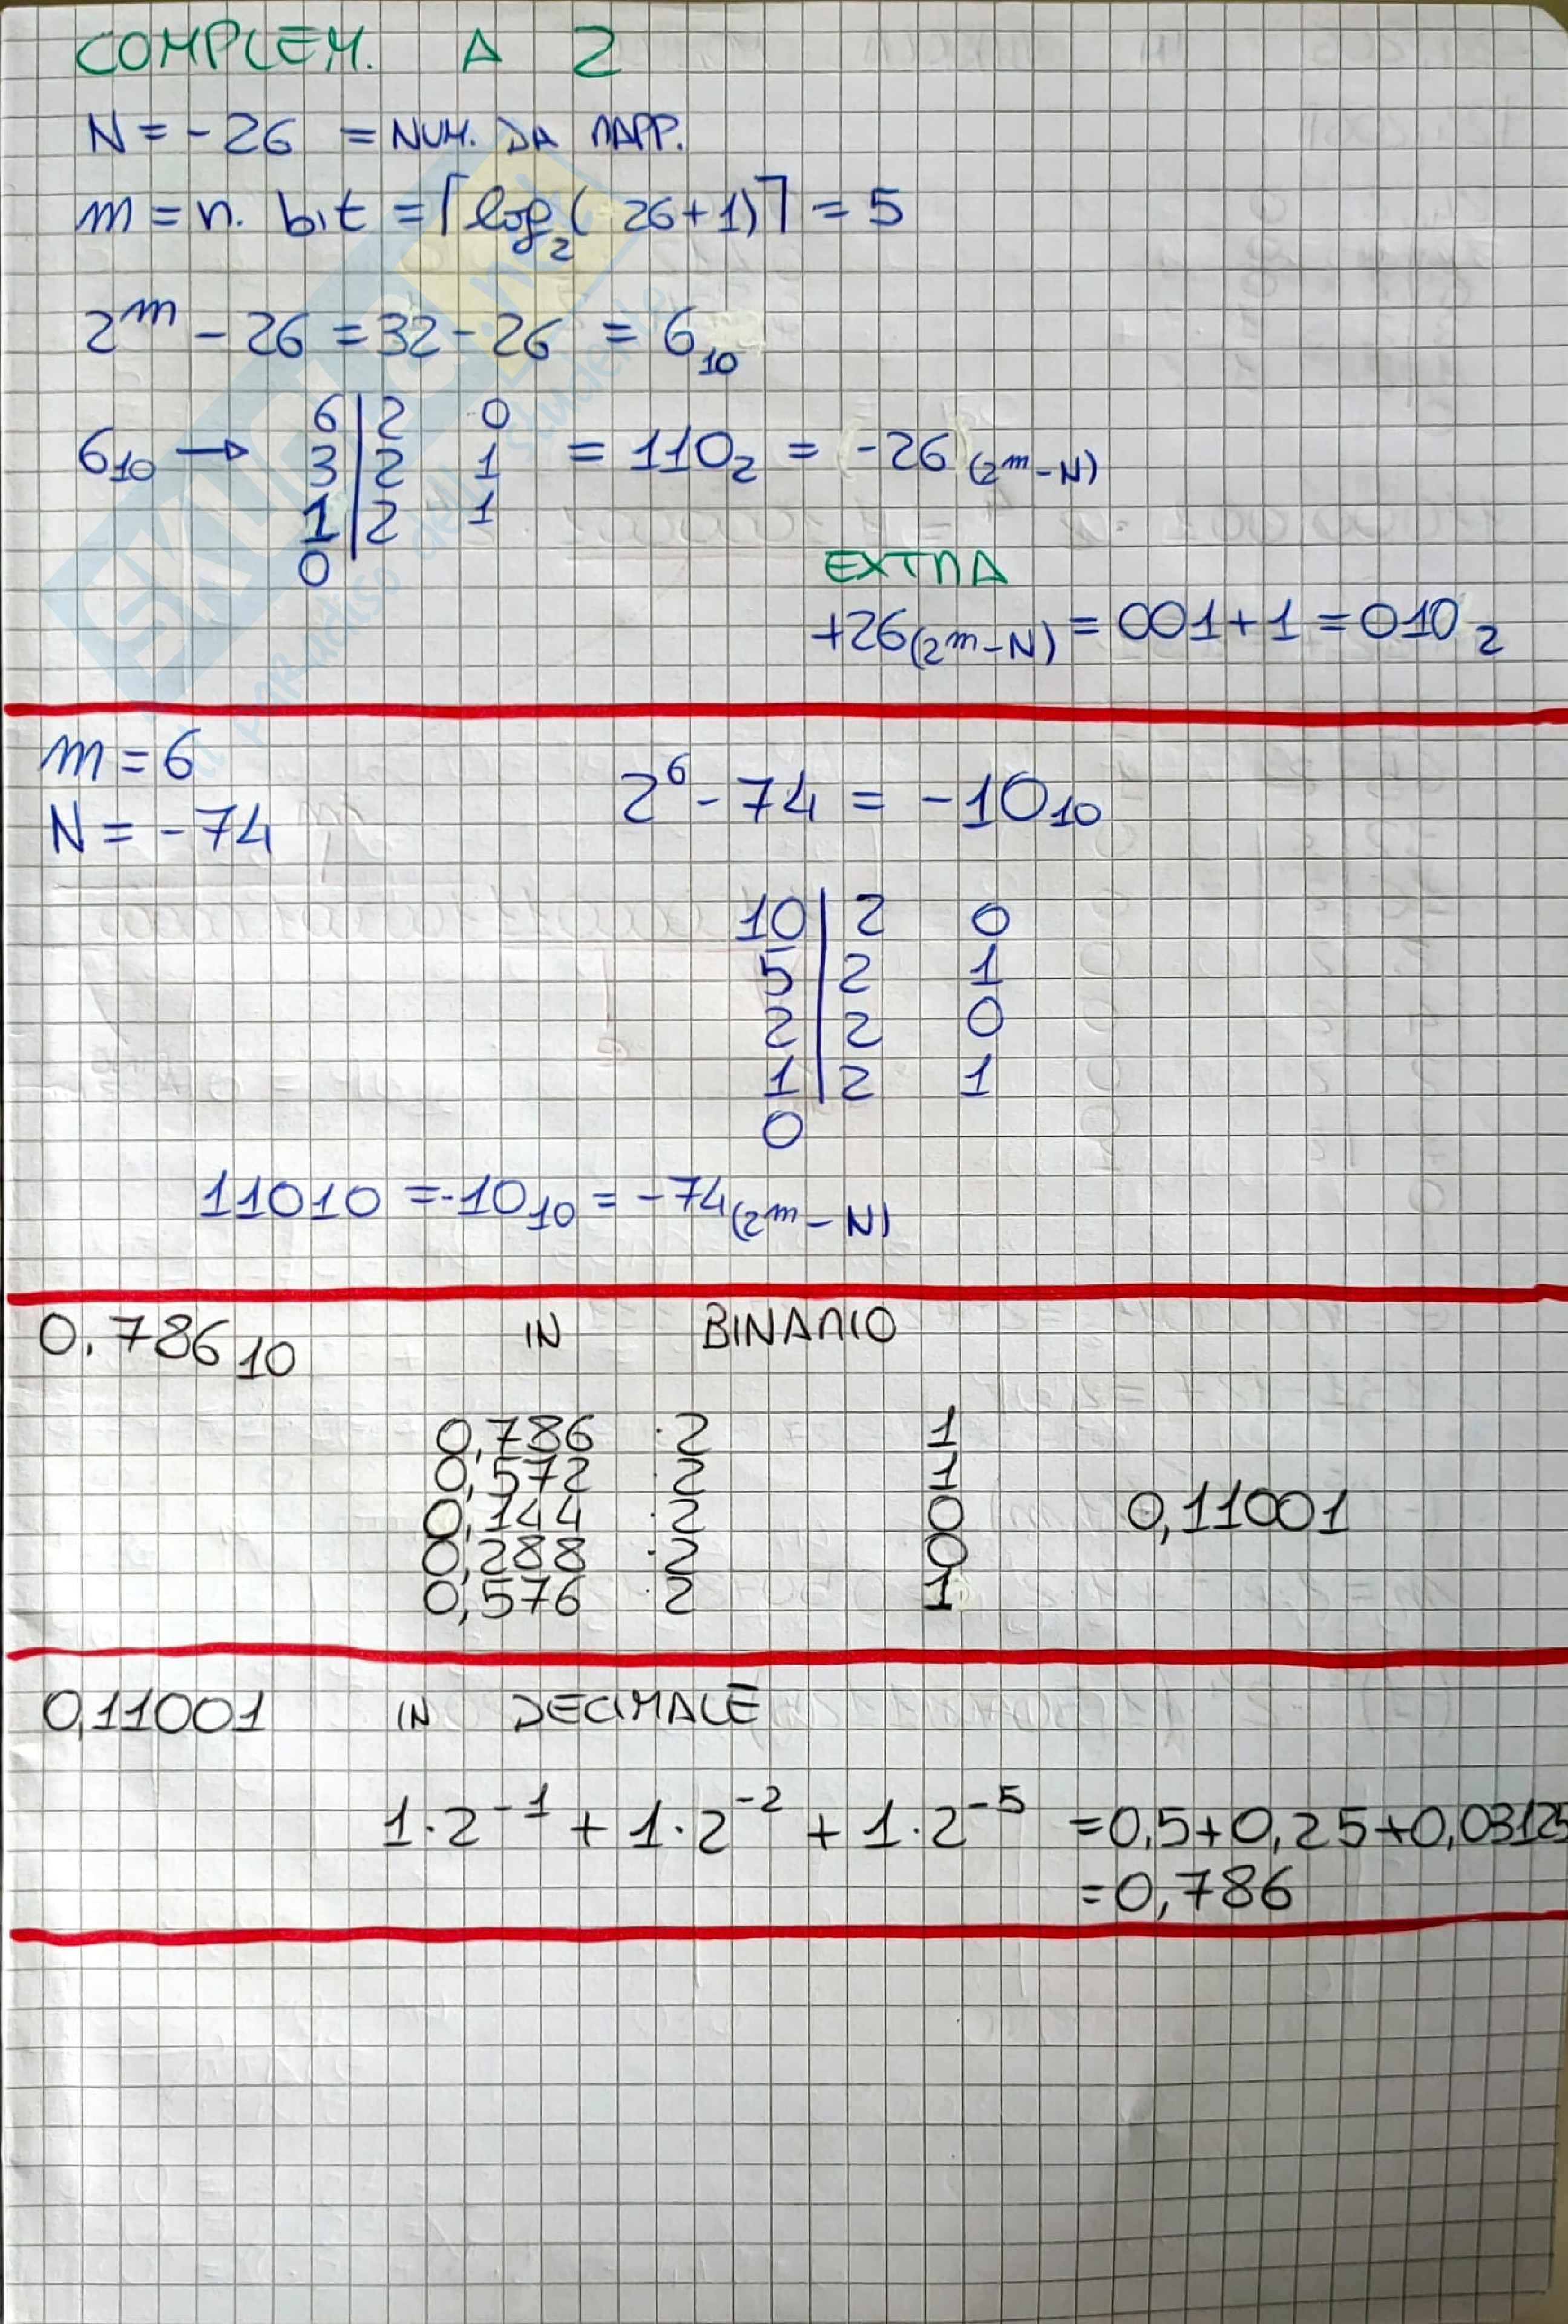 COMPLEM. A 2
N = - 26 = NUM. DA RAPP.
m = n. bit = ⌈log₂( 26+1)⌉ = 5
2^m - 26 = 32 - 26 = 6₁₀
6₁₀ → 6 | 2 0
3 | 2 1
1 | 2 1
0
= 110₂ = -26 (2^m-N)
EXTRA
+26(2^m-N) = 001+1 = 010₂
m = 6
N = -74
2⁶ - 74 = -10₁₀
10 | 2 0
5 | 2 1
2 | 2 0
1 | 2 1
0
11010 = -10₁₀ = -74(2^m-N)
0.786₁₀ IN BINARIO
0,786 ·2 1
0,572 ·2 1
0,144 ·2 0
0,288 ·2 0
0,576 ·2 1
0,11001
0,11001 IN DECIMALE
1·2⁻¹ + 1·2⁻² + 1·2⁻⁵ = 0,5+0,25+0,03125
= 0,786
SKUOLA.net
il paradiso dello studente